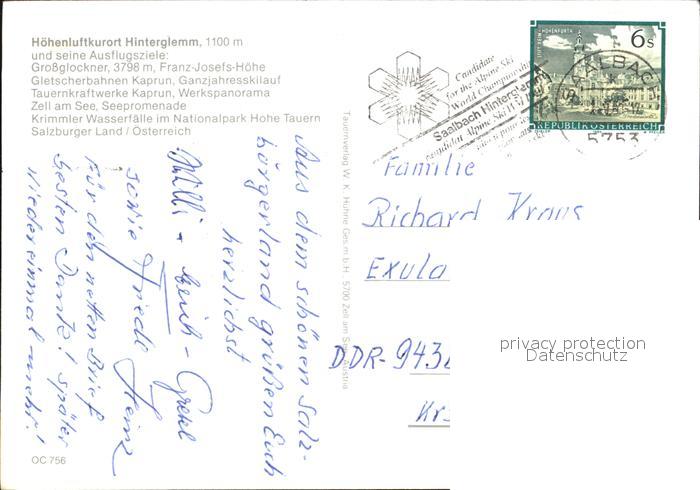 Höhenluftkurort Hinterglemm, 1100 m
und seine Ausflugsziele:
Großglockner, 3798 m, Franz-Josefs-Höhe
Gletscherbahnen Kaprun, Ganzjahresskilauf
Tauernkraftwerke Kaprun, Werkspanorama
Zell am See, Seepromenade
Krimmler Wasserfälle im Nationalpark Hohe Tauern
Salzburger Land / Österreich
Aus dem schönen Salz-
burgerland grüßen Euch
herzlichst
Willi - Erich - Gretl
sowie Friedl Heinz
Für den netten Brief
besten Dank! Später
wiedereinmal mehr!
OC 756
Tauernverlag W. K. Huhne Ges.m.b.H. - 5700 Zell am See, Austria
Candidate
for the Alpine Ski
World Championship
Saalbach Hinterglemm
candidat Alpine Ski
6 S
STIFT REIN-HOHENFURTH
REPUBLIK ÖSTERREICH
SAALBACH
5753
Familie
Richard Kraus
Exula
DDR-943
Kr
privacy protection
Datenschutz